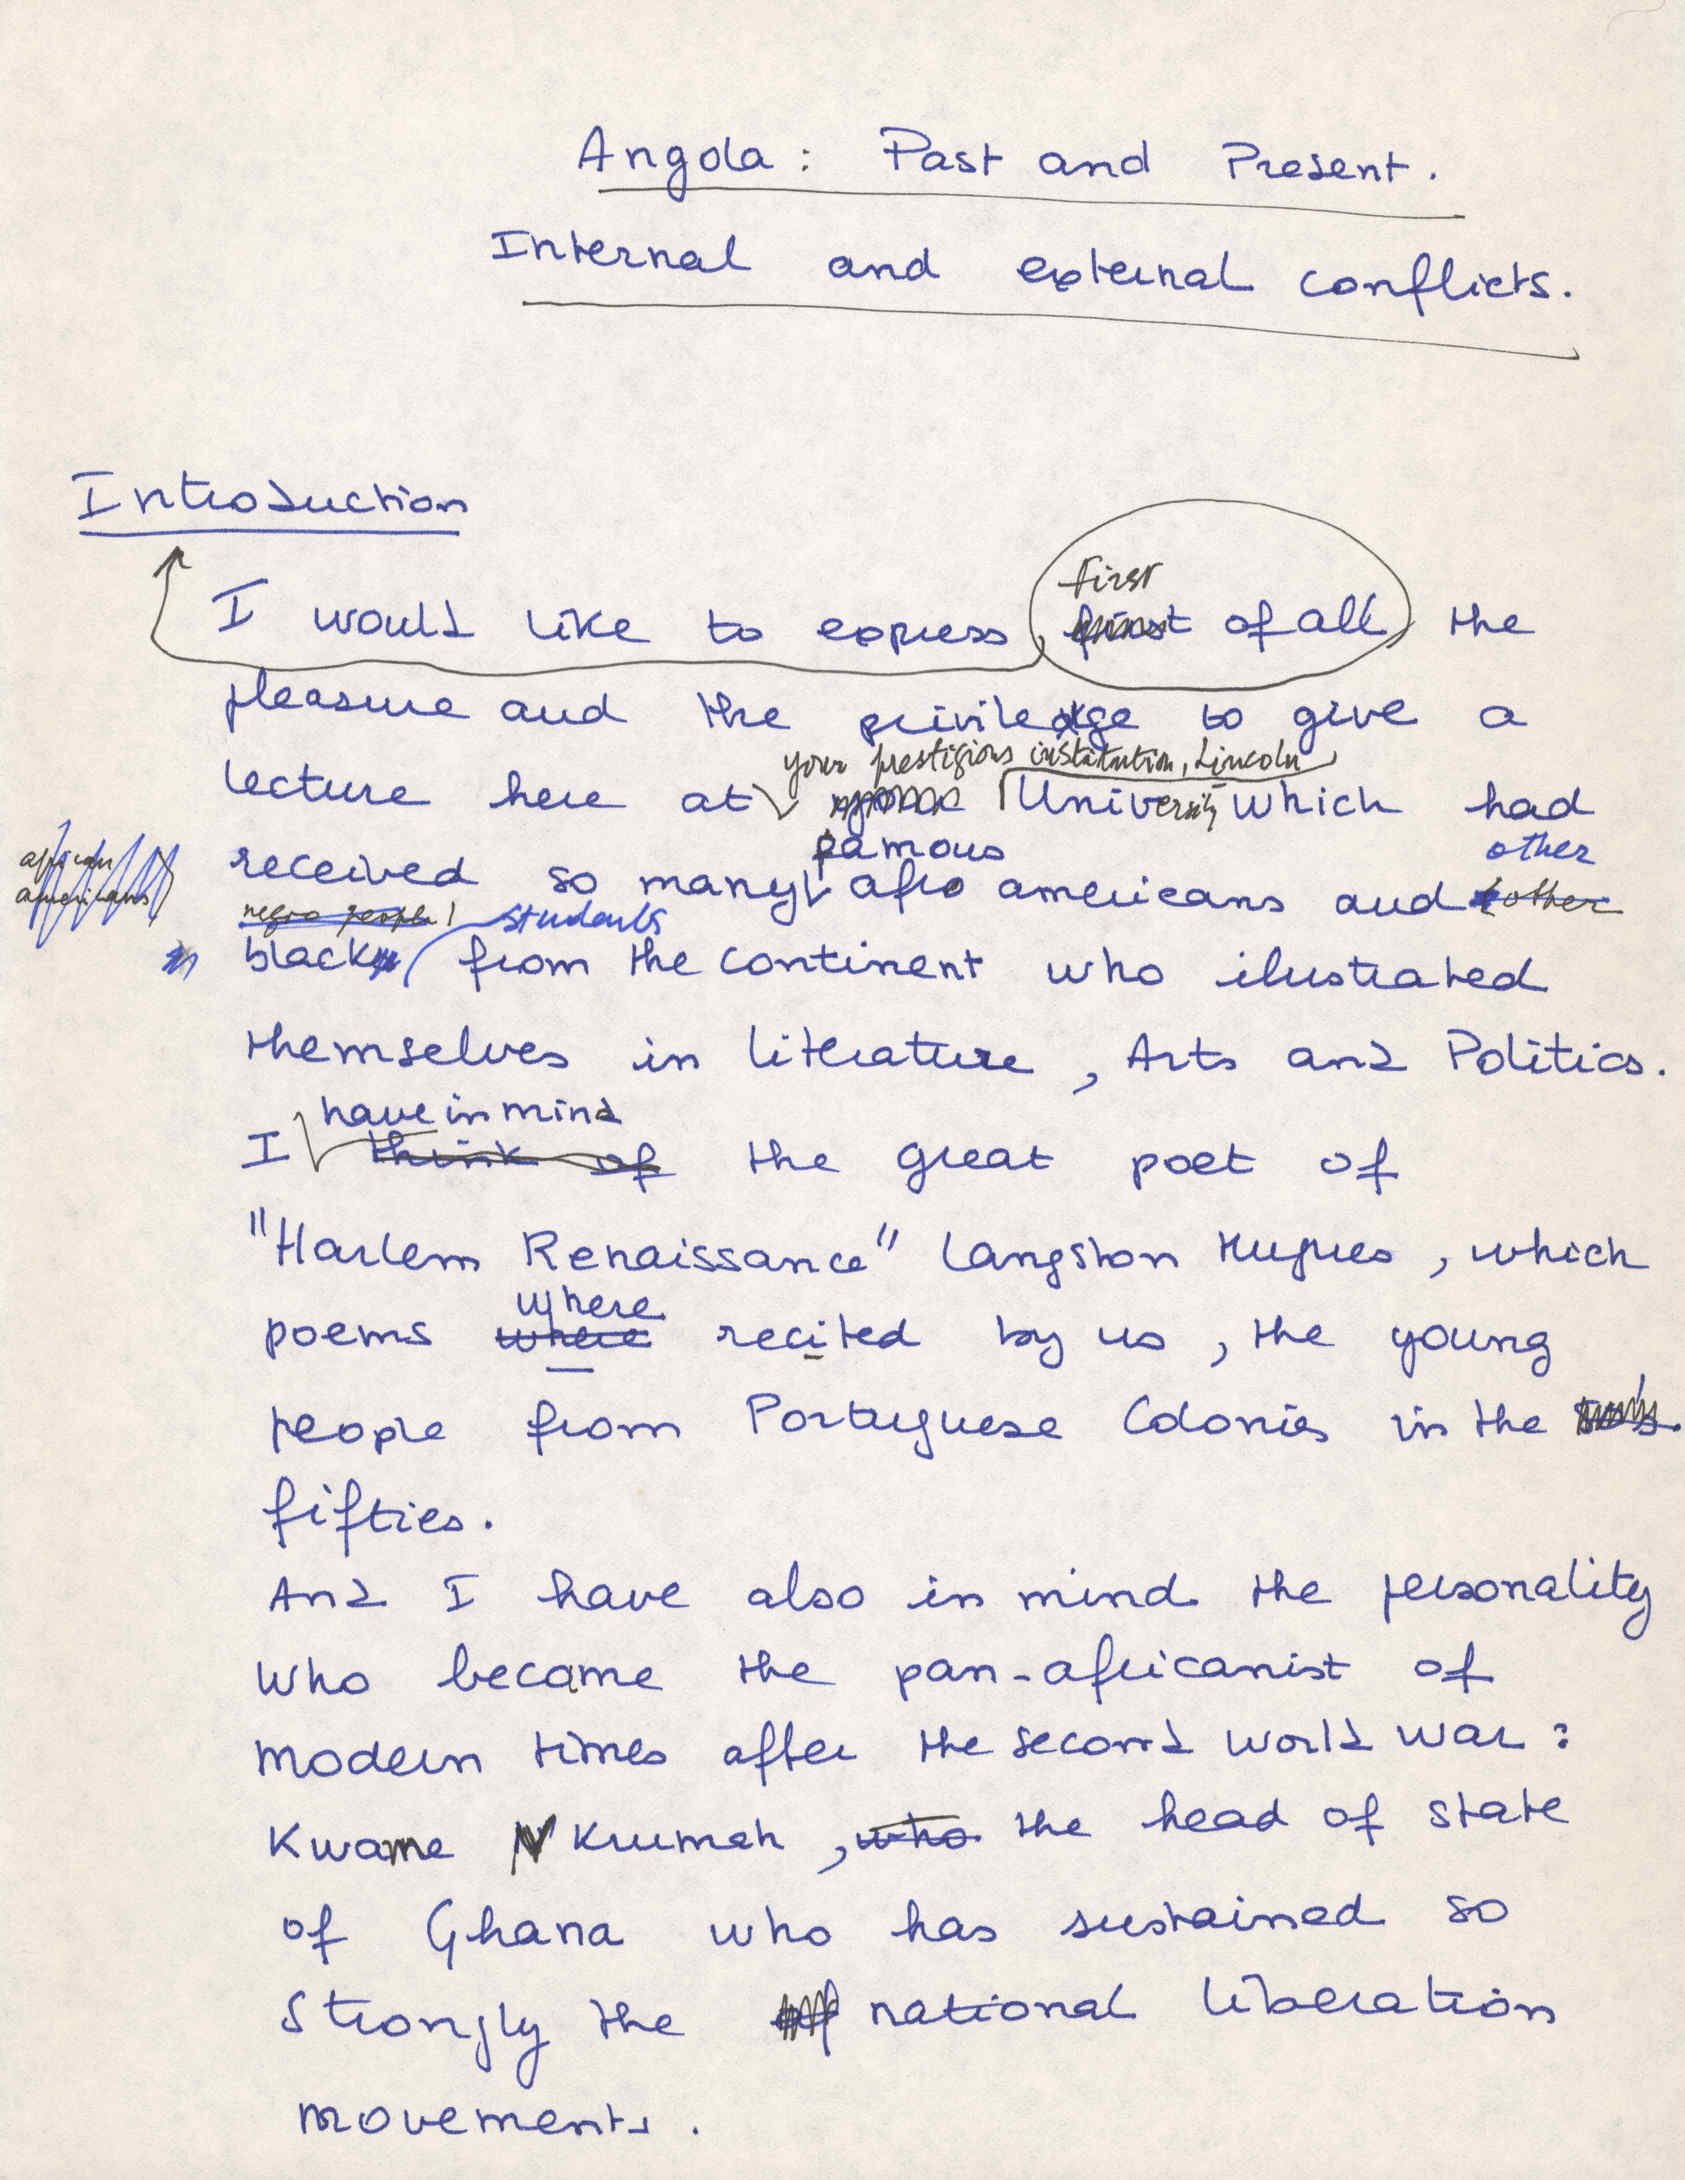 Angola: Past and Present.
Internal and external conflicts.
Introduction
first
I would like to express, first of all, the
pleasure and the privilege to give a
your prestigious institution, Lincoln
lecture here at University which had
famous other
received so many afro americans and other
african
americans
negro people students
black from the continent who ilustrated
themselves in literature, Arts and Politics.
have in mind
I think of the great poet of
"Harlem Renaissance" Langston Hugues, which
where
poems where recited by us, the young
people from Portuguese Colonies in the
fifties.
And I have also in mind the personality
who became the pan-africanist of
modern times after the second world war:
Kwame N Krumah, who the head of state
of Ghana who has sustained so
strongly the national liberation
movements.